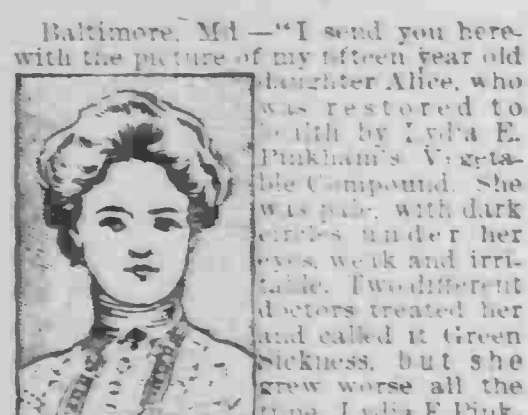 Baltimore, Md.—"I send you here-
with the picture of my fifteen year old
daughter Alice, who
was restored to
health by Lydia E.
Pinkham's Vegeta-
ble Compound. She
was pale, with dark
circles under her
eyes, weak and irri-
table. Two different
doctors treated her
and called it Green
Sickness, but she
grew worse all the
time. Lydia E. Pink-